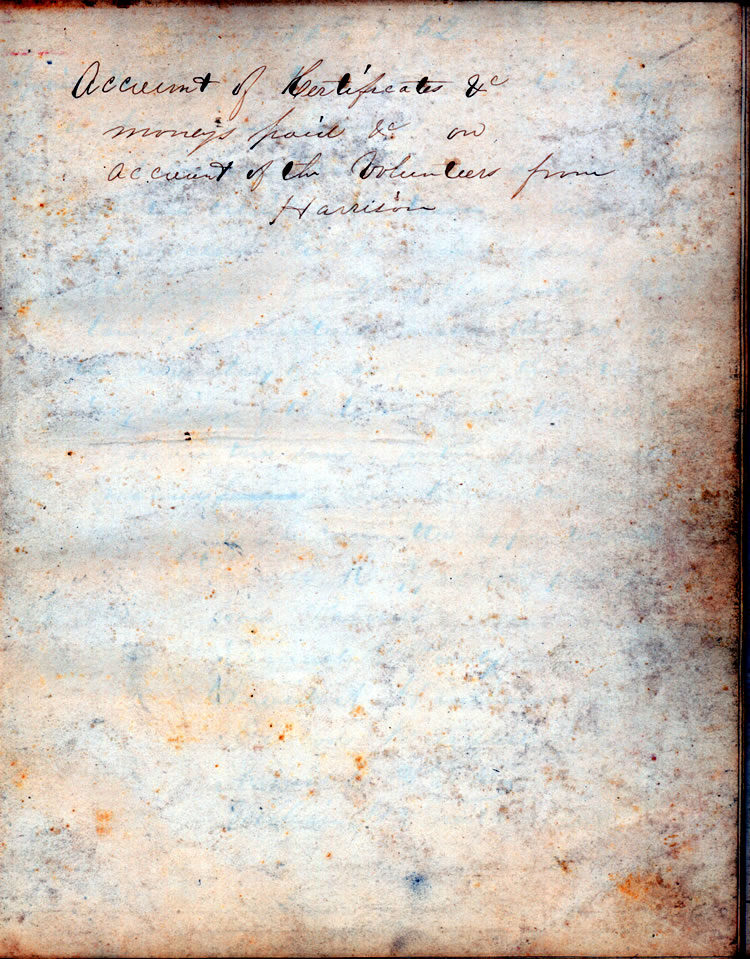 Account of Certificates &c
moneys paid &c on
account of the Volunteers from
Harrison